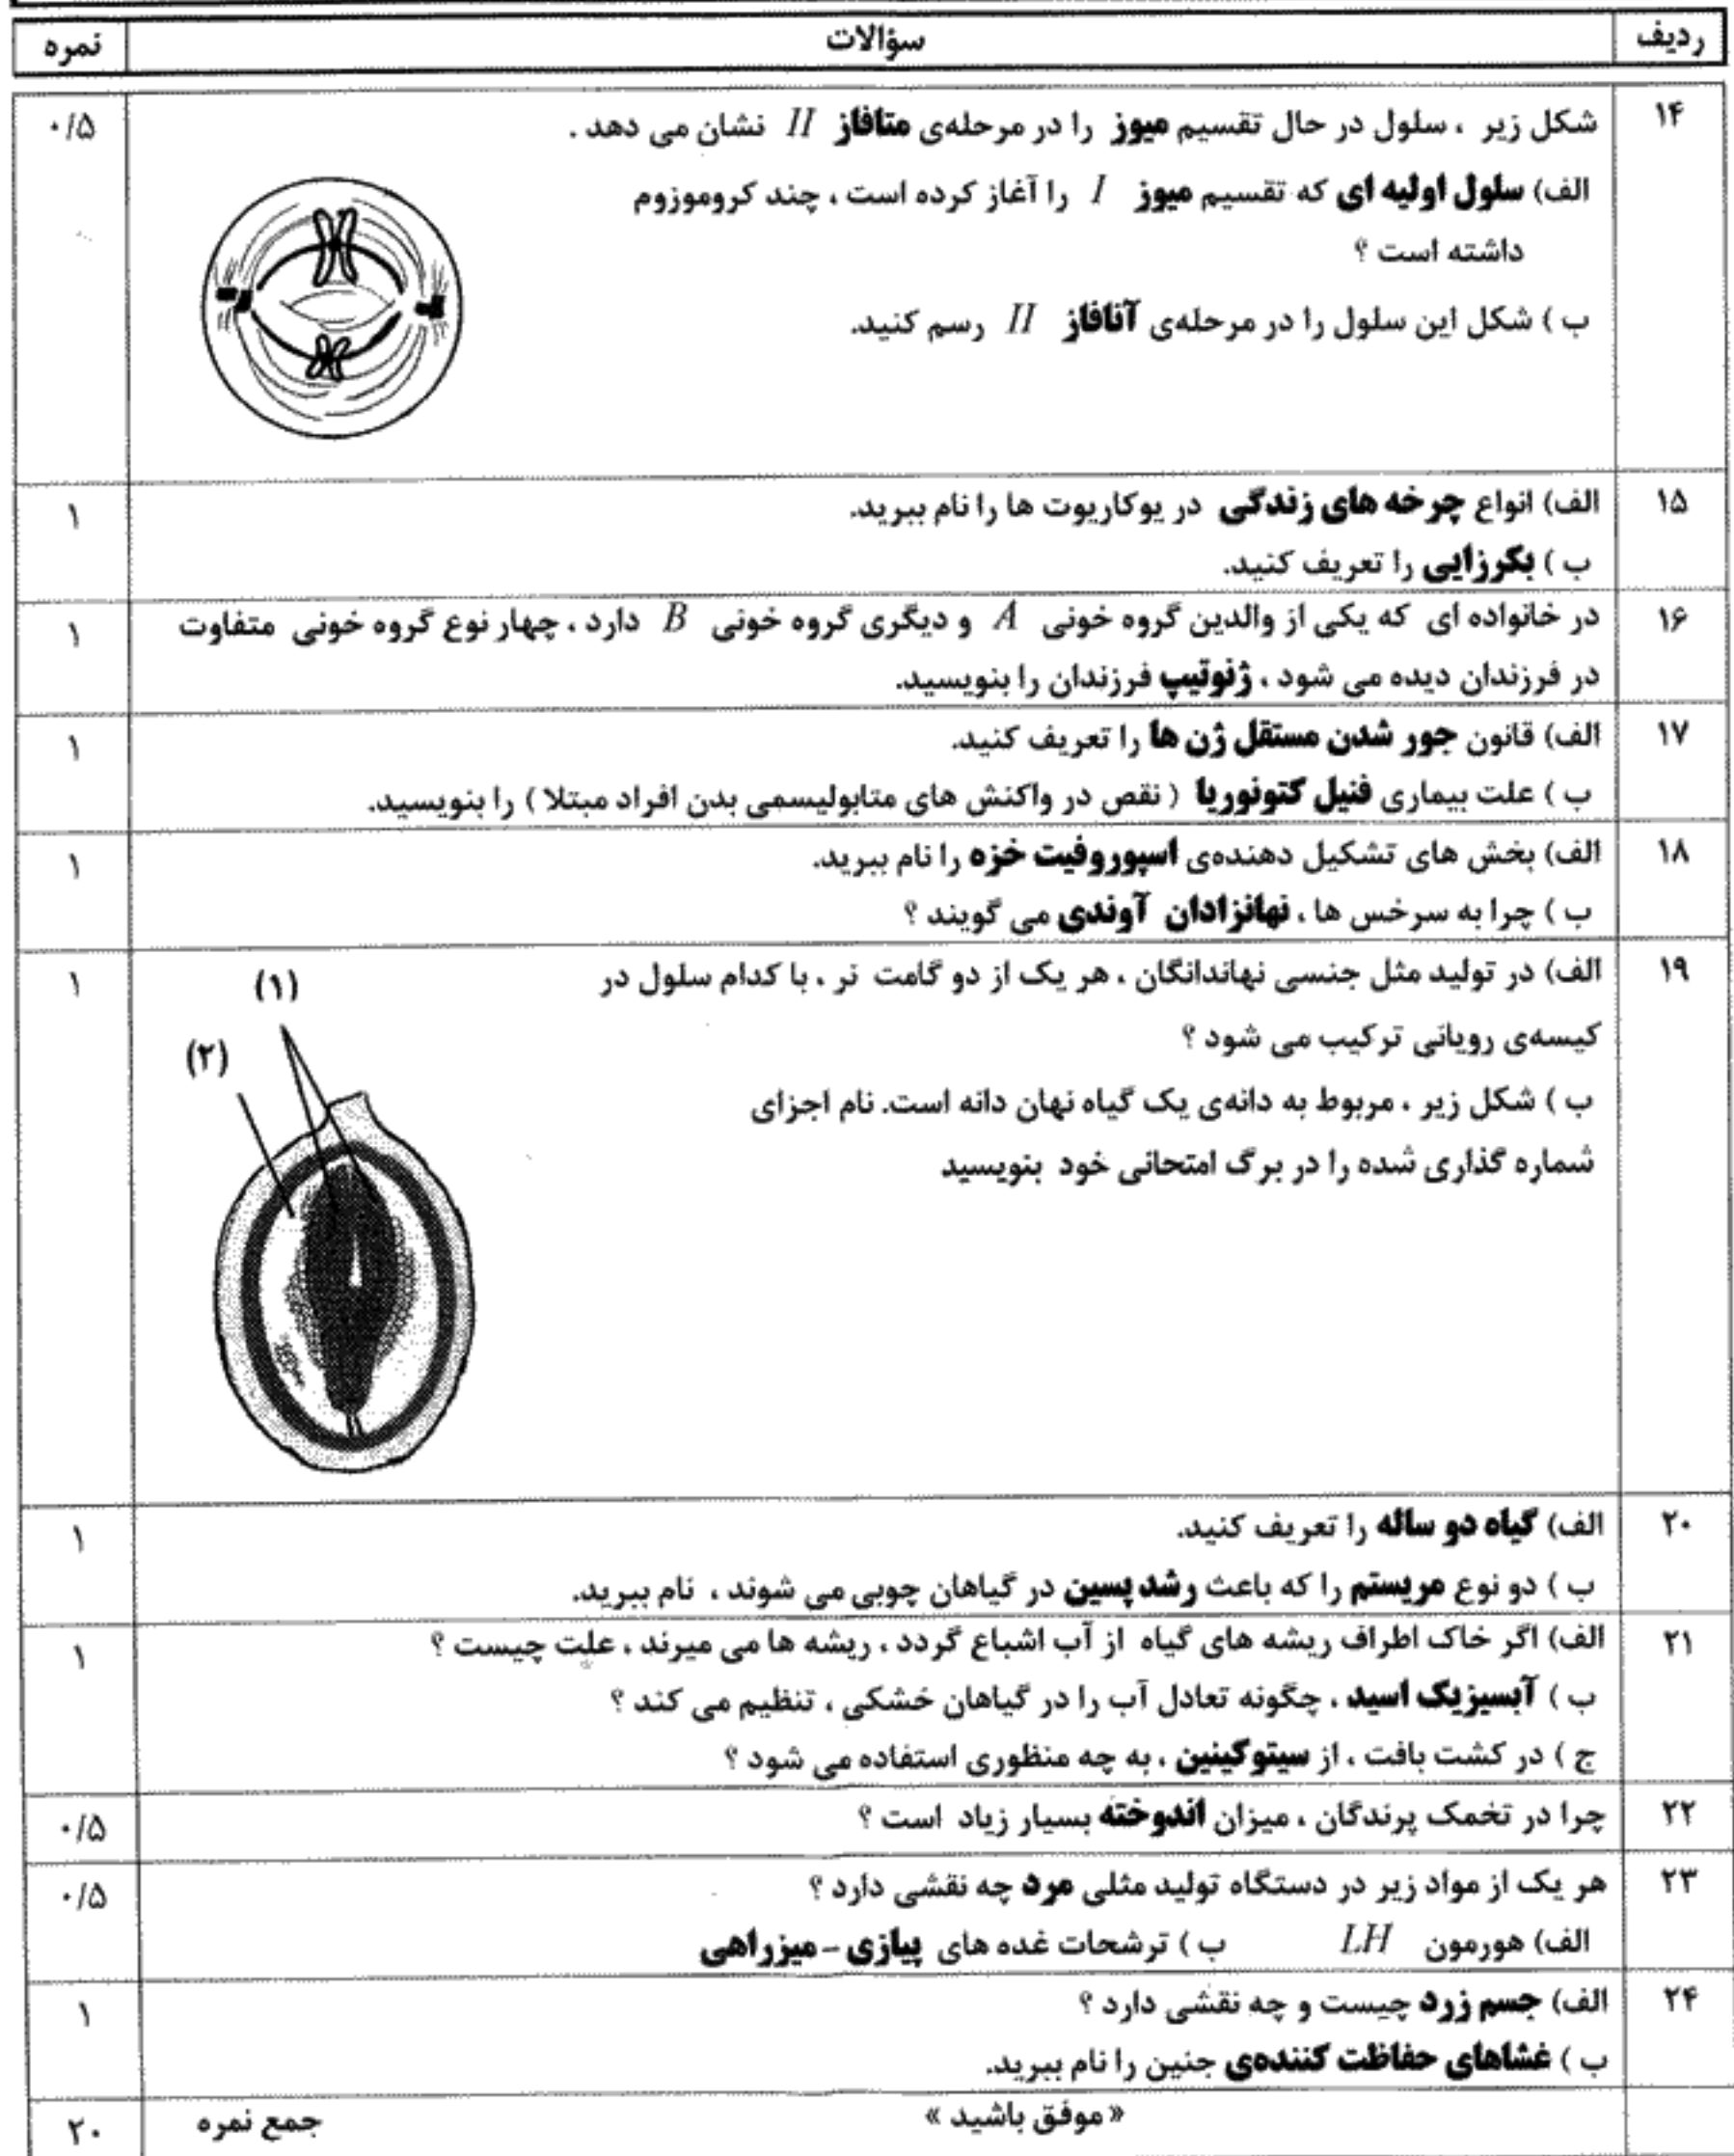 ردیف سؤالات نمره
۱۴ شکل زیر ، سلول در حال تقسیم میوز را در مرحله‌ی متافاز II نشان می دهد . ۰/۵
الف) سلول اولیه ای که تقسیم میوز I را آغاز کرده است ، چند کروموزوم
داشته است ؟
ب ) شکل این سلول را در مرحله‌ی آنافاز II رسم کنید.
۱۵ الف) انواع چرخه های زندگی در یوکاریوت ها را نام ببرید. ۱
ب ) بکرزایی را تعریف کنید.
۱۶ در خانواده ای که یکی از والدین گروه خونی A و دیگری گروه خونی B دارد ، چهار نوع گروه خونی متفاوت ۱
در فرزندان دیده می شود ، ژنوتیپ فرزندان را بنویسید.
۱۷ الف) قانون جور شدن مستقل ژن ها را تعریف کنید. ۱
ب ) علت بیماری فنیل کتونوریا ( نقص در واکنش های متابولیسمی بدن افراد مبتلا ) را بنویسید.
۱۸ الف) بخش های تشکیل دهنده‌ی اسپوروفیت خزه را نام ببرید. ۱
ب ) چرا به سرخس ها ، نهانزادان آوندی می گویند ؟
۱۹ الف) در تولید مثل جنسی نهاندانگان ، هر یک از دو گامت نر ، با کدام سلول در ۱
کیسه‌ی رویانی ترکیب می شود ؟
ب ) شکل زیر ، مربوط به دانه‌ی یک گیاه نهان دانه است. نام اجزای
شماره گذاری شده را در برگ امتحانی خود بنویسید
(۱)
(۲)
۲۰ الف) گیاه دو ساله را تعریف کنید. ۱
ب ) دو نوع مریستم را که باعث رشد پسین در گیاهان چوبی می شوند ، نام ببرید.
۲۱ الف) اگر خاک اطراف ریشه های گیاه از آب اشباع گردد ، ریشه ها می میرند ، علت چیست ؟ ۱
ب ) آبسیزیک اسید ، چگونه تعادل آب را در گیاهان خشکی ، تنظیم می کند ؟
ج ) در کشت بافت ، از سیتوکینین ، به چه منظوری استفاده می شود ؟
۲۲ چرا در تخمک پرندگان ، میزان اندوخته بسیار زیاد است ؟ ۰/۵
۲۳ هر یک از مواد زیر در دستگاه تولید مثلی مرد چه نقشی دارد ؟ ۰/۵
الف) هورمون LH ب ) ترشحات غده های پیازی - میزراهی
۲۴ الف) جسم زرد چیست و چه نقشی دارد ؟ ۱
ب ) غشاهای حفاظت کننده‌ی جنین را نام ببرید.
« موفق باشید » جمع نمره ۲۰